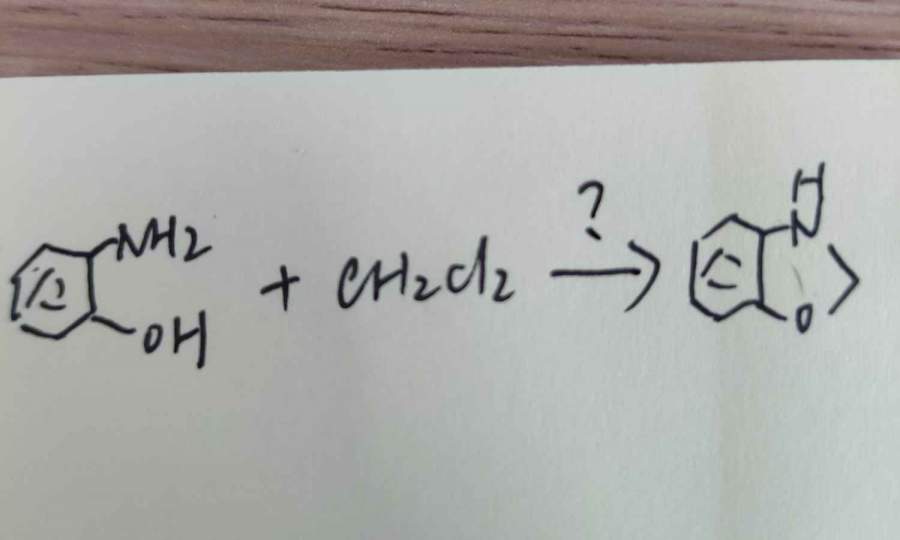 NH2
OH
+ CH2Cl2
?
H
N
O